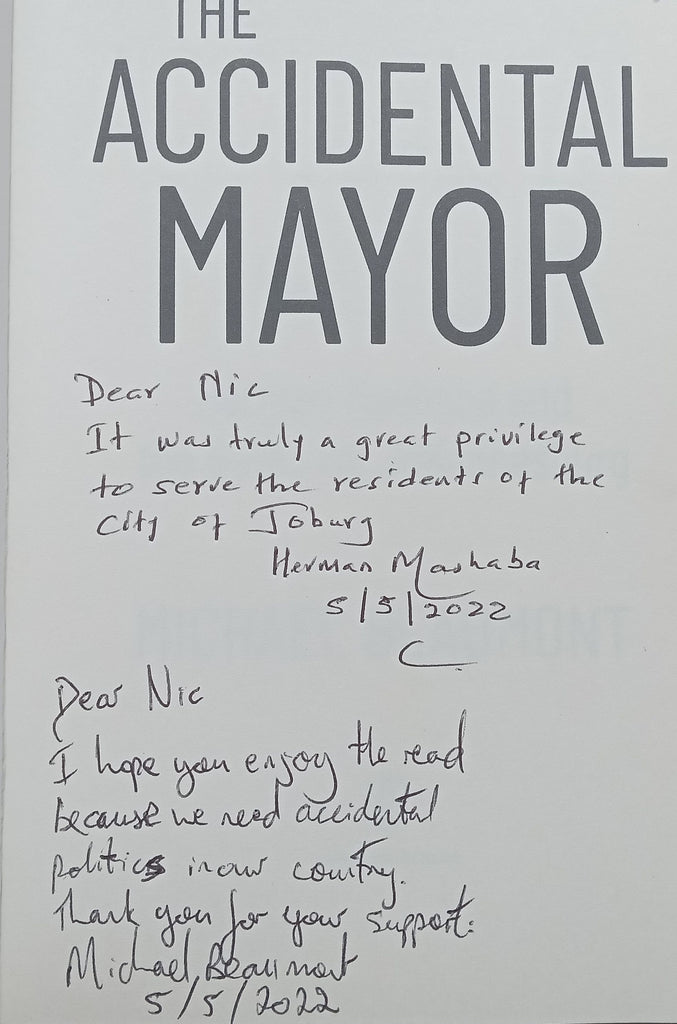 THE
ACCIDENTAL
MAYOR
Dear Nic
It was truly a great privilege
to serve the residents of the
City of Joburg
Herman Mashaba
5/5/2022
Dear Nic
I hope you enjoy the read
because we need accidental
politics in our country.
Thank you for your support.
Michael Beaumont
5/5/2022